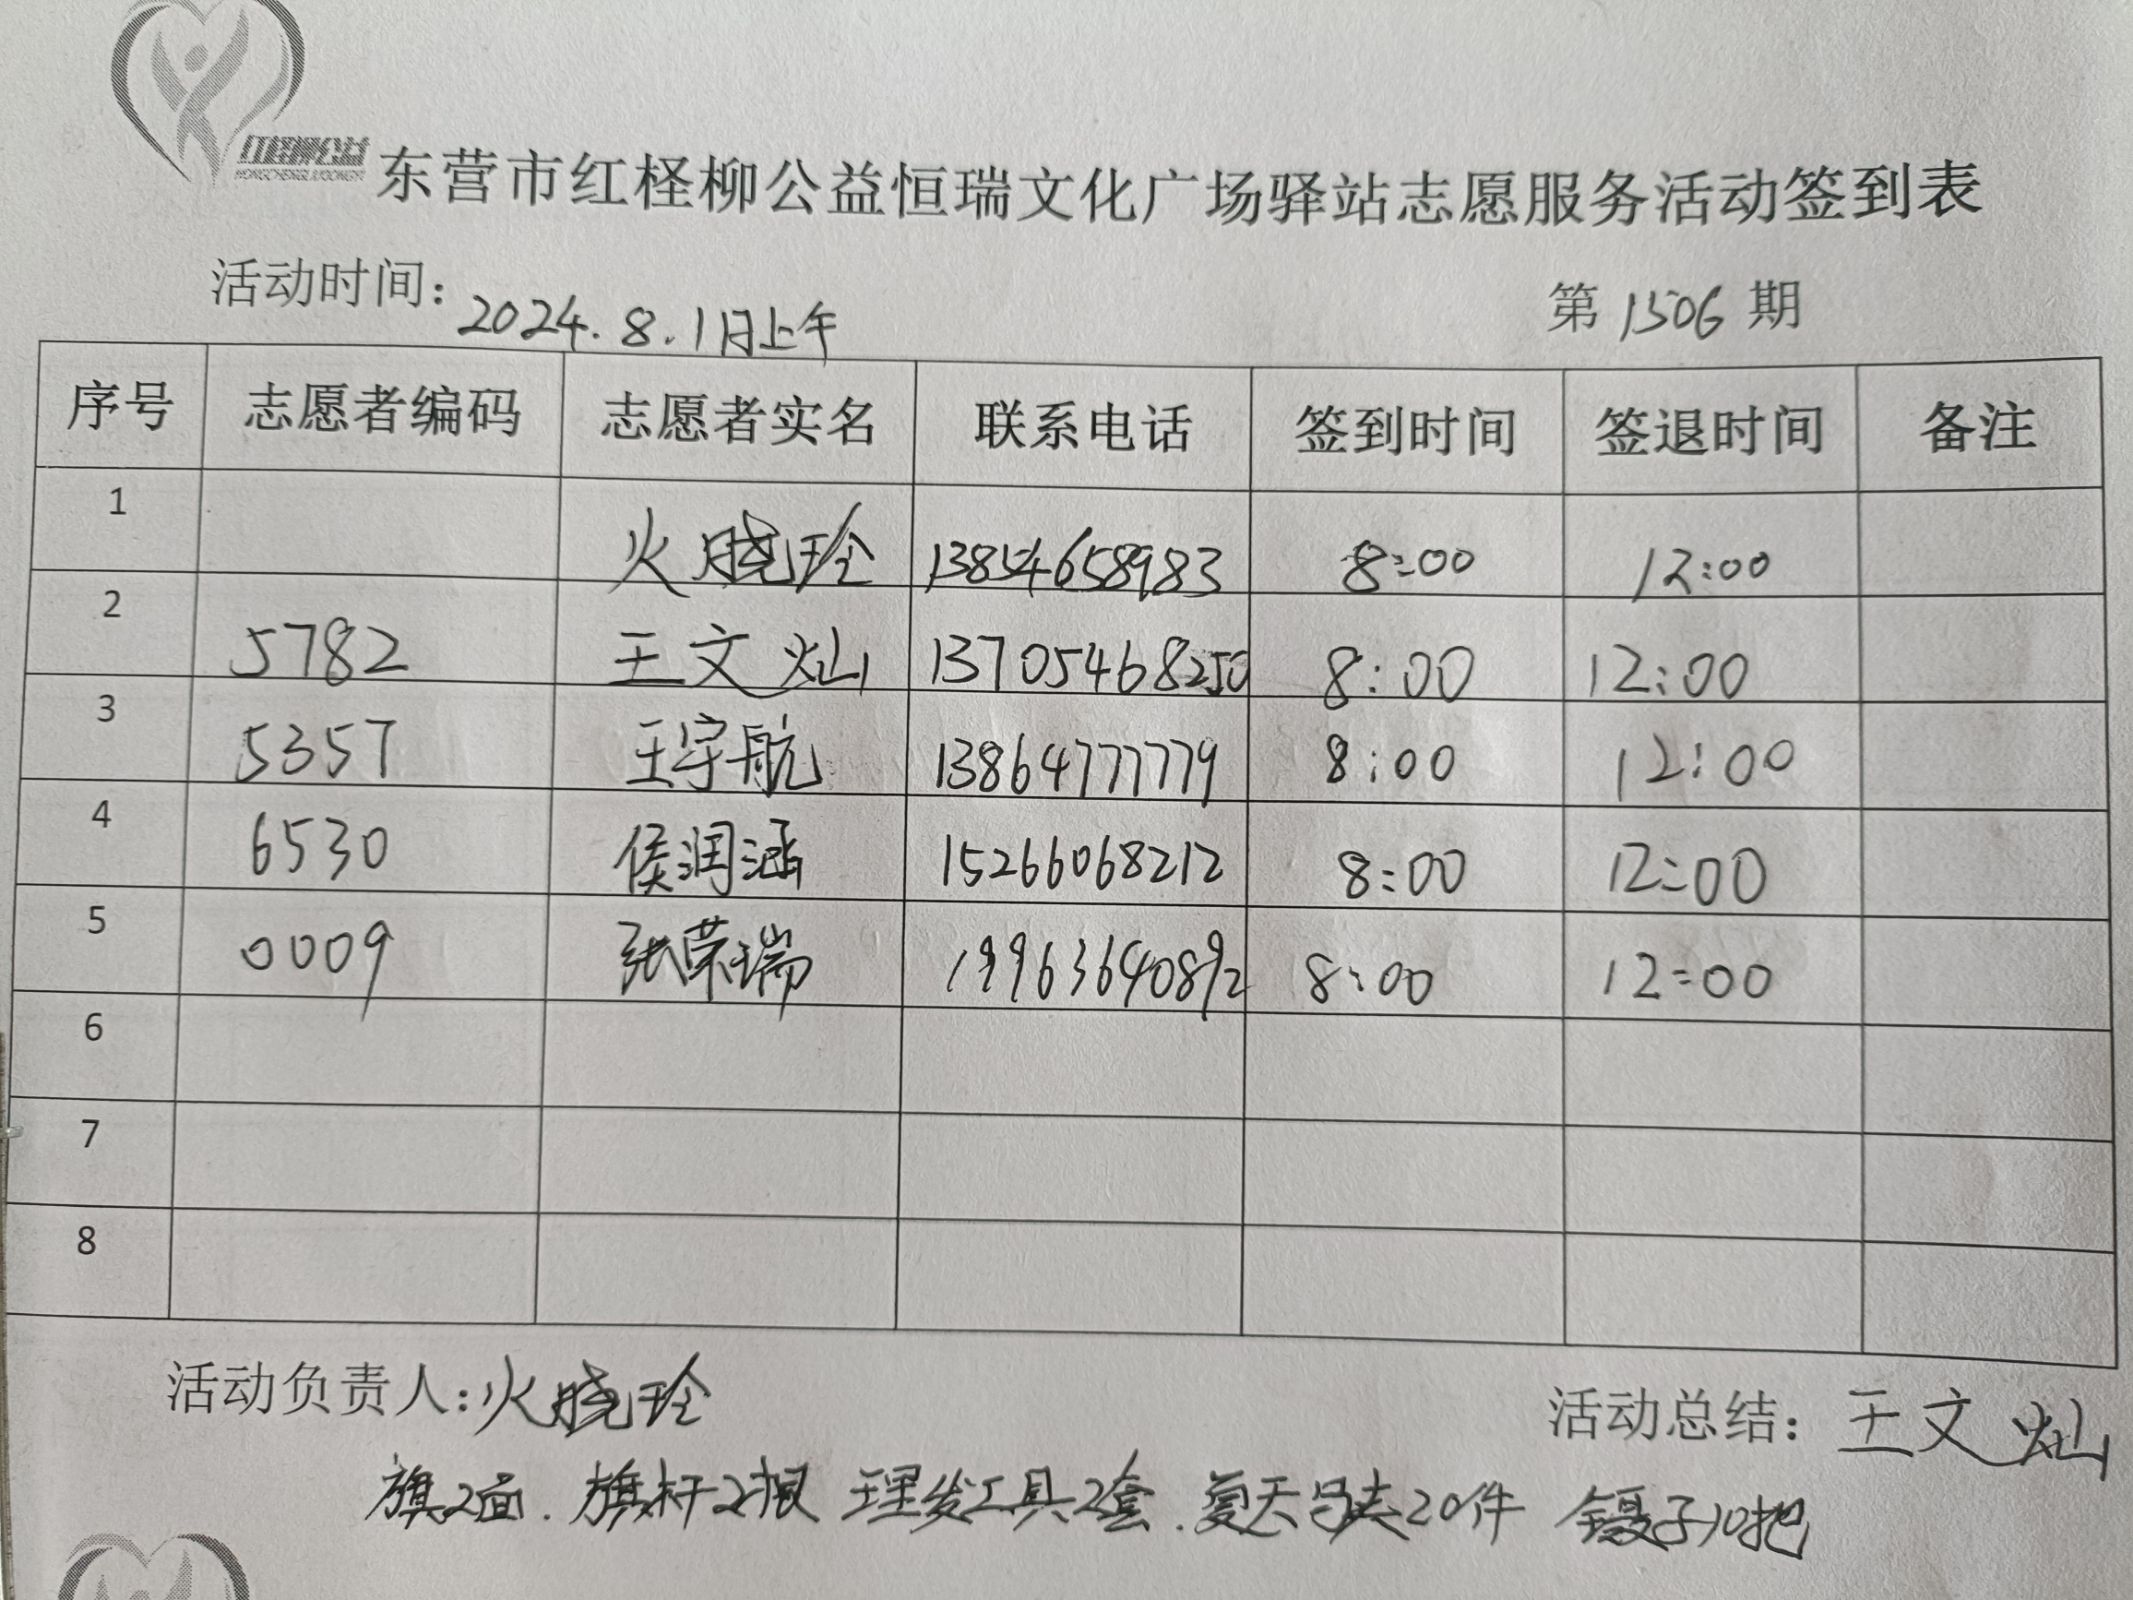 红柽柳公益
东营市红柽柳公益恒瑞文化广场驿站志愿服务活动签到表
活动时间：2024.8.1日上午 第 1506 期
序号 志愿者编码 志愿者实名 联系电话 签到时间 签退时间 备注
1 火晓玲 13854658983 8:00 12:00
2 5782 王文灿 13705468250 8:00 12:00
3 5357 王宇航 13864777779 8:00 12:00
4 6530 侯润涵 15266068212 8:00 12:00
5 0009 张荣瑞 19963640892 8:00 12:00
6
7
8
活动负责人：火晓玲 活动总结：王文灿
旗2面．旗杆2根 理发工具2套．夏天马夹20件 镊子10把